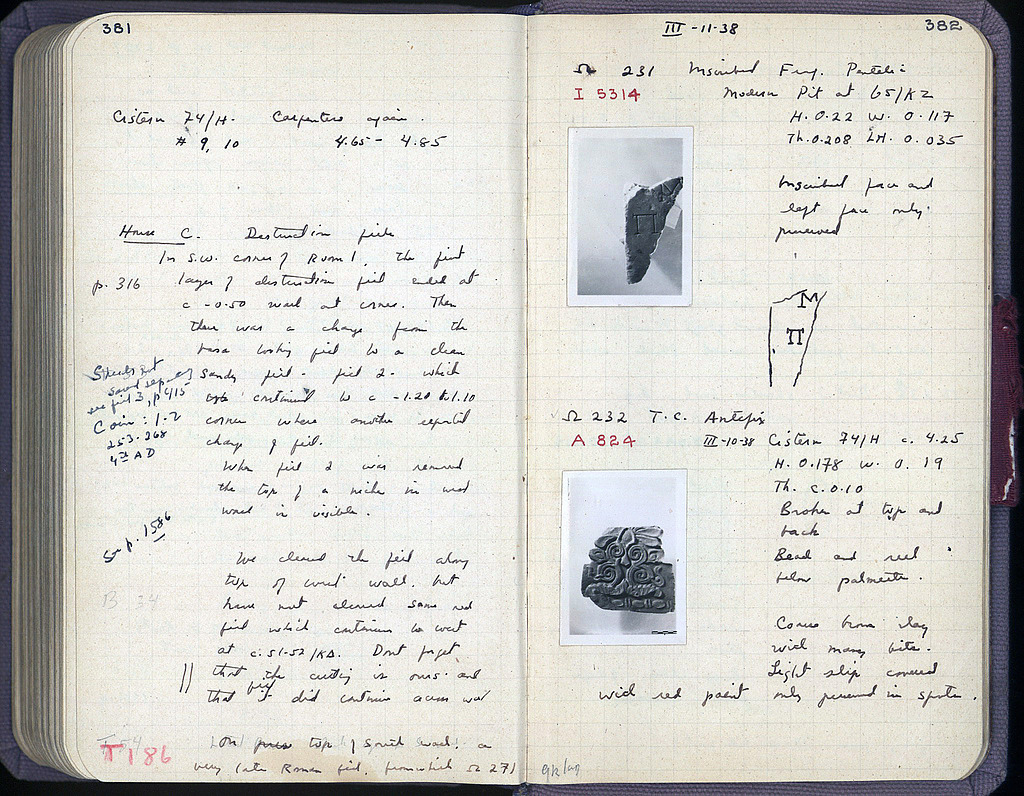 381
Cistern 74/H. Carpenters again.
# 9, 10 4.65 - 4.85
House C. Destruction fill
In S.W. corner of Room 1, the first
p. 316 layer of destruction fill ended at
c -0.50 west at corner. Then
there was a change from the
looking fill to a clean
sandy fill - fill 2 - which
continued to c -1.20 1.10
corner where another
change of fill.
Sherds not
saved separately
see fill 3, p 415
Coin: 1-2
253-268
4th AD
When fill 2 was removed
the top of a niche in west
wall is visible.
See p. 1586
We cleared the fill along
top of west wall. but
have not cleared some red
fill which continues to west
at c. 51-52/KA. Dont forget
that the cutting is ours and
that fill did continue across wall
B 34
T 186
On top of South wall. a
very late Roman fill, from which Ω 271
III -11-38
382
Ω 231 Inscribed Frag. Pentelic
I 5314 Modern Pit at 65/KZ
H. 0.22 W. 0.117
Th. 0.208 LH. 0.035
Inscribed face and
left face only
preserved
Μ
Π
Ω 232 T.C. Antefix
A 824 III-10-38 Cistern 74/H c. 4.25
H. 0.178 W. 0.19
Th. c. 0.10
Broken at top and
back
Bead and reel
below palmette.
Coarse brown clay
with many bits.
Light slip covered
with red paint only preserved in spots.